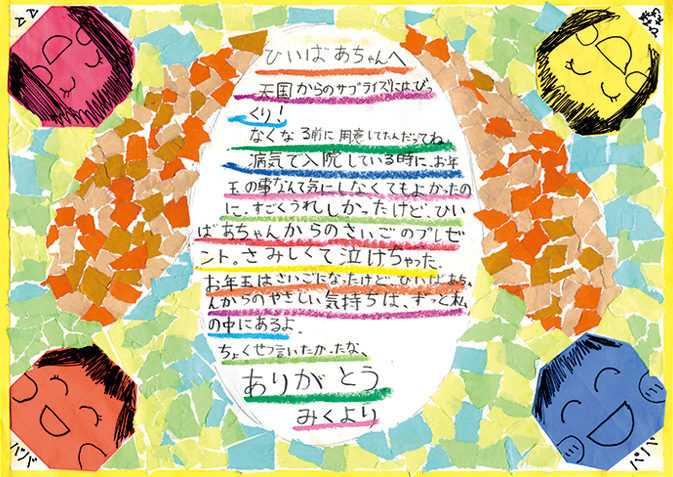 ママ
ひいばあちゃんへ
天国からのサプライズにはびっ
くり!
なくなる前に用意してたんだってね。
病気で入院している時に、お年
玉の事なんて気にしなくてもよかったの
に。すごくうれしかったけど、ひい
ばあちゃんからのさいごのプレゼ
ント。さみしくて泣けちゃった。
お年玉はさいごになったけど、ひいばあちゃ
んからのやさしい気持ちは、ずっと私
の中にあるよ。
ちょくせつ言いたかったな、
ありがとう
みくより
パパ